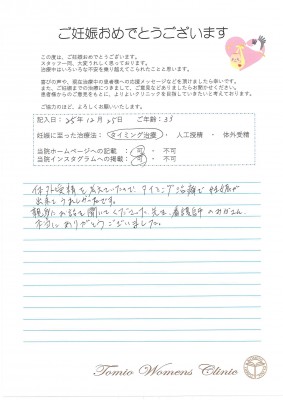 ご妊娠おめでとうございます
この度は、ご妊娠おめでとうございます。
スタッフ一同、大変うれしく思っております。
治療中はいろいろな不安を乗り越えてこられたことと思います。
喜びの声や、現在治療中の患者様への応援メッセージなどを頂けましたら幸いです。
また、ご妊娠までの治療につきまして、ご意見などありましたらお聞かせください。
患者様からのご意見をもとに、より良いクリニックを目指していきたいと考えております。
ご協力のほど、よろしくお願いいたします。
記入日：25年12月25日 ご年齢：33
妊娠に至った治療法：タイミング治療・人工授精・体外受精
当院ホームページへの記載：可・不可
当院インスタグラムへの掲載：可・不可
体外受精も考えていたので、タイミング治療で妊娠が
出来てうれしかったです。
親身にお話を聞いてくださった先生、看護師のみなさん
本当にありがとうございました。
Tomio Womens Clinic